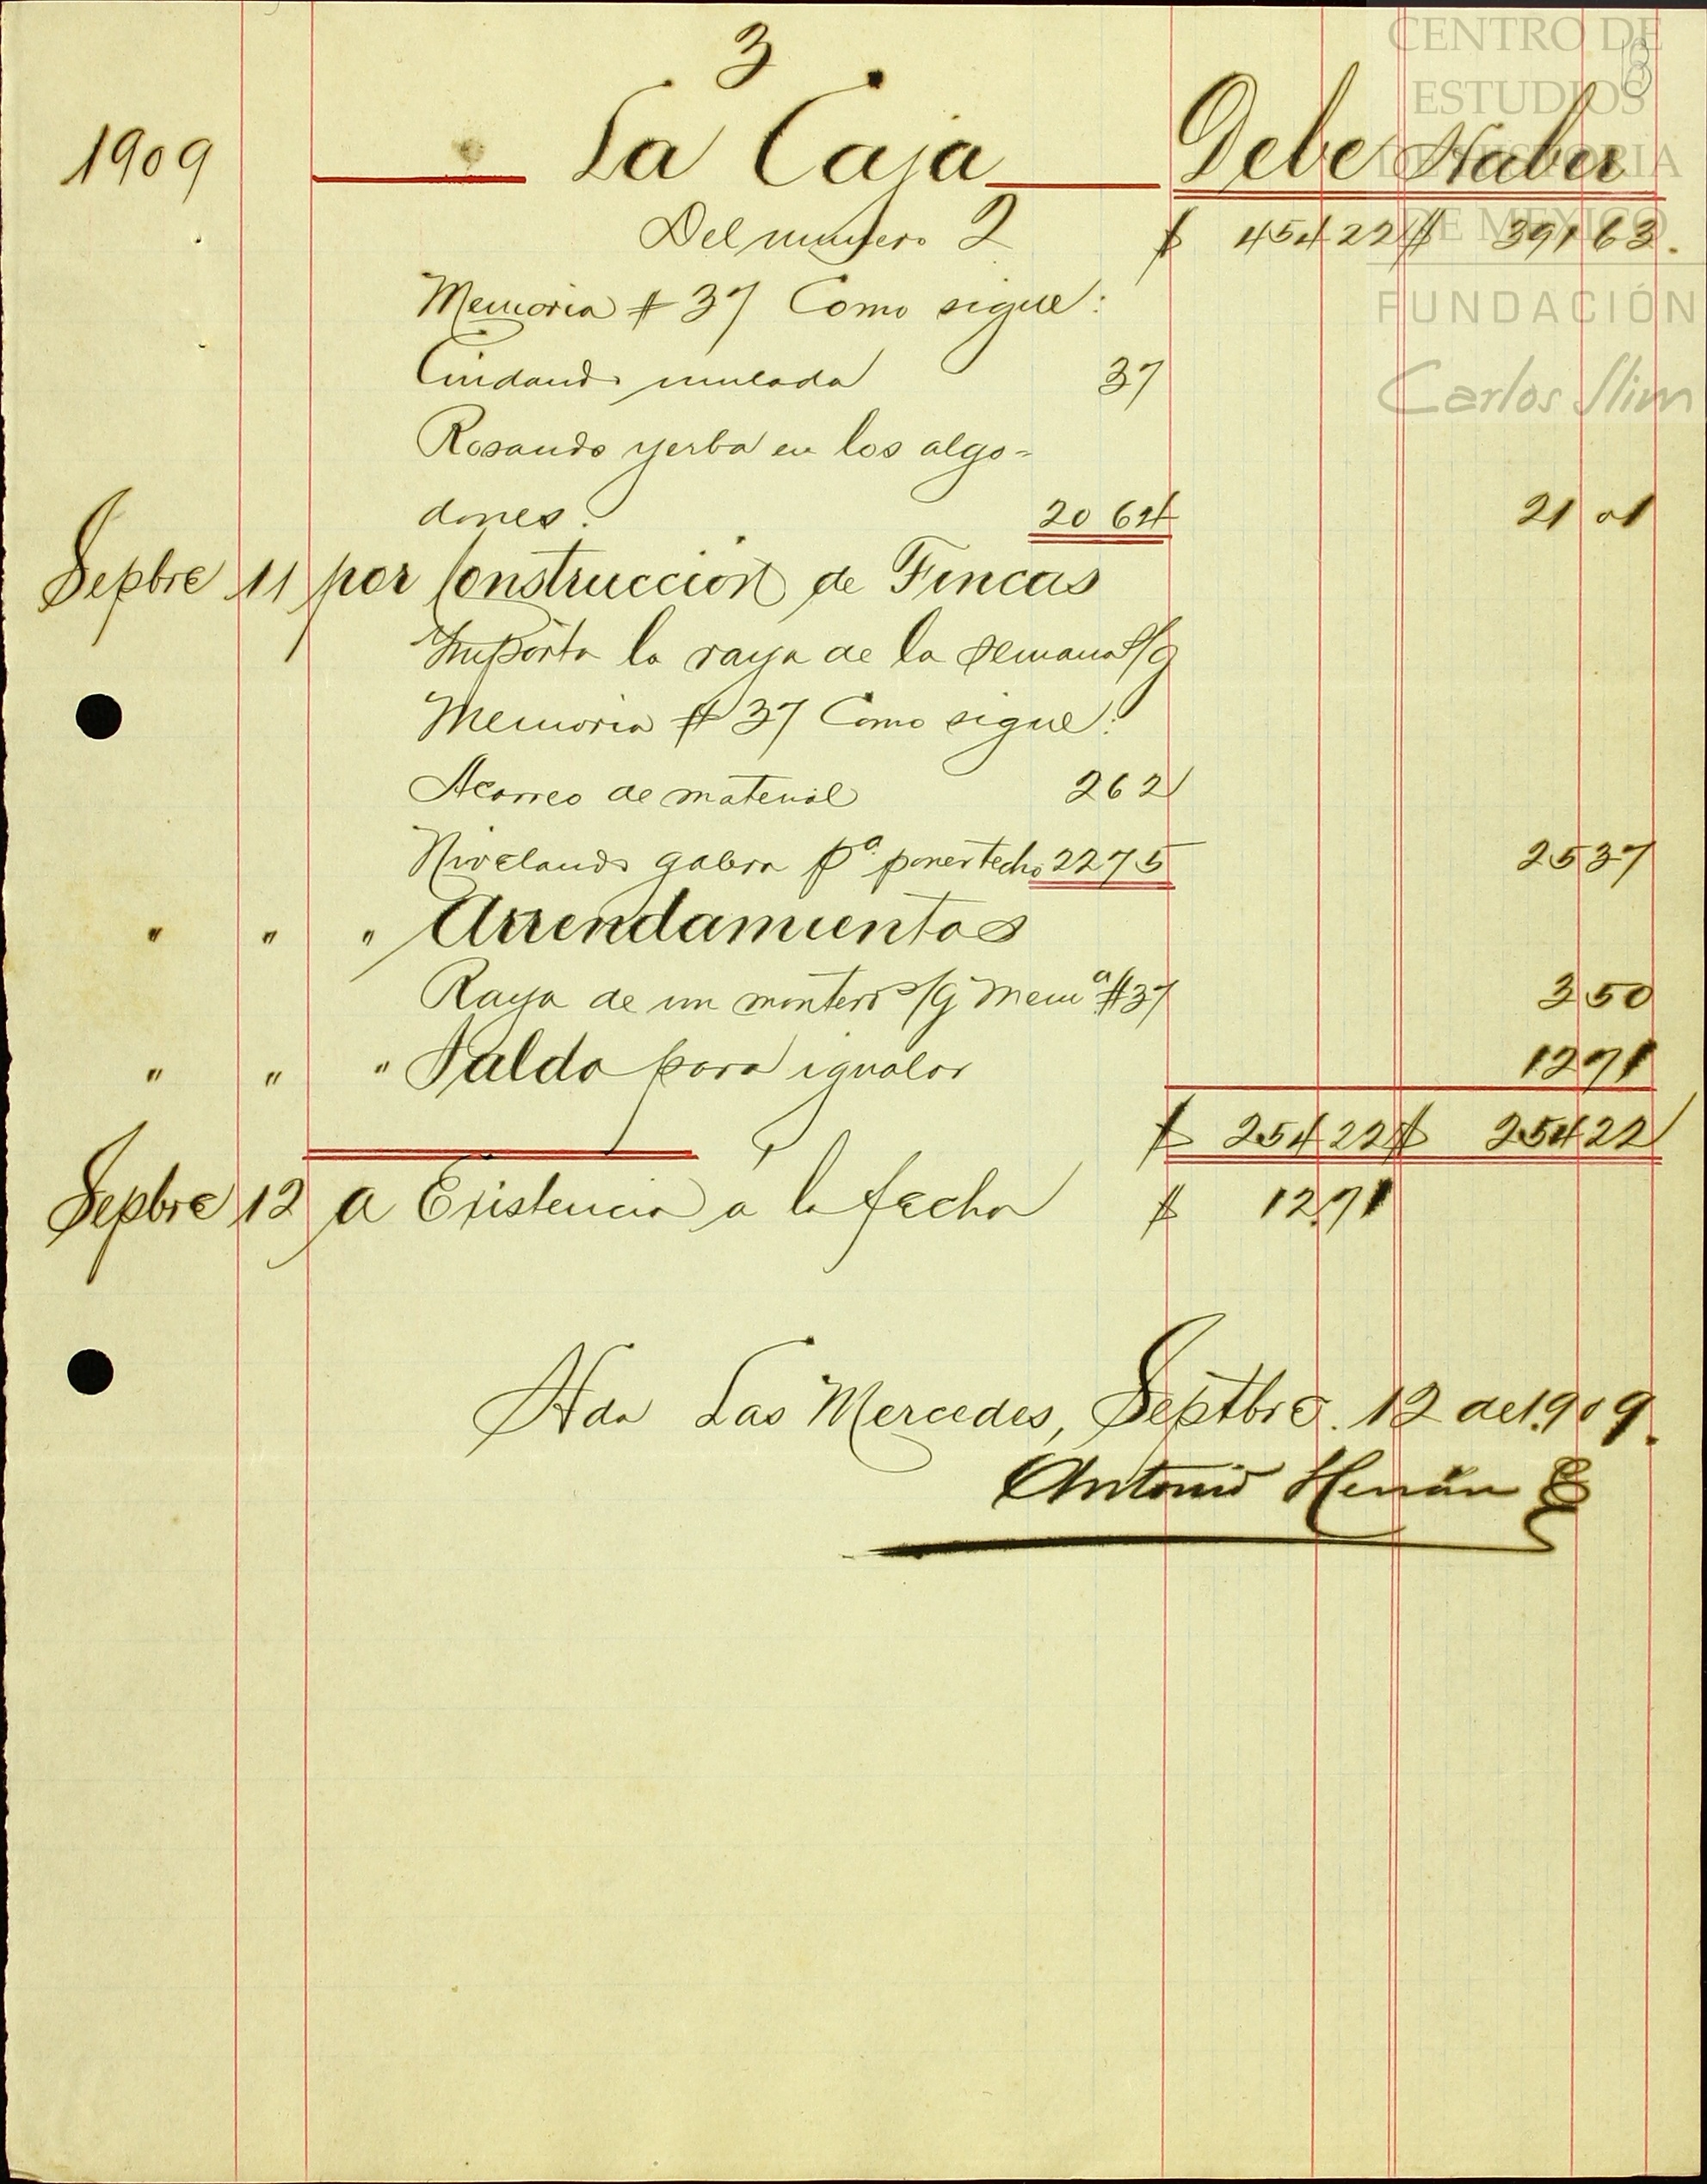 3
1909 La Caja Debe Haber
Del numero 2 $ 454 22 $ 391 63.
Memoria # 37 Como sigue:
Cuidando mulada 37
Rosando yerba en los algo=
dones. 20 64 21 01
Sepbre 11 por Construccion de Fincas
Importa la raya de la semana s/g
Memoria # 37 Como sigue:
Acarreo de material 2 62
Nivelando galera pª poner techo 22 75 25 37
" " " Arrendamientos
Raya de un montero s/g Memª #37 3 50
" " " Saldo para igualar 12 71
$ 254 22 $ 254 22
Sepbre 12 a Existencia a la fecha $ 12.71
Hda Las Mercedes, Septbre. 12 de 1.909.
Antonio
CENTRO DE
ESTUDIOS
DE HISTORIA
DE MEXICO
FUNDACIÓN
Carlos Slim